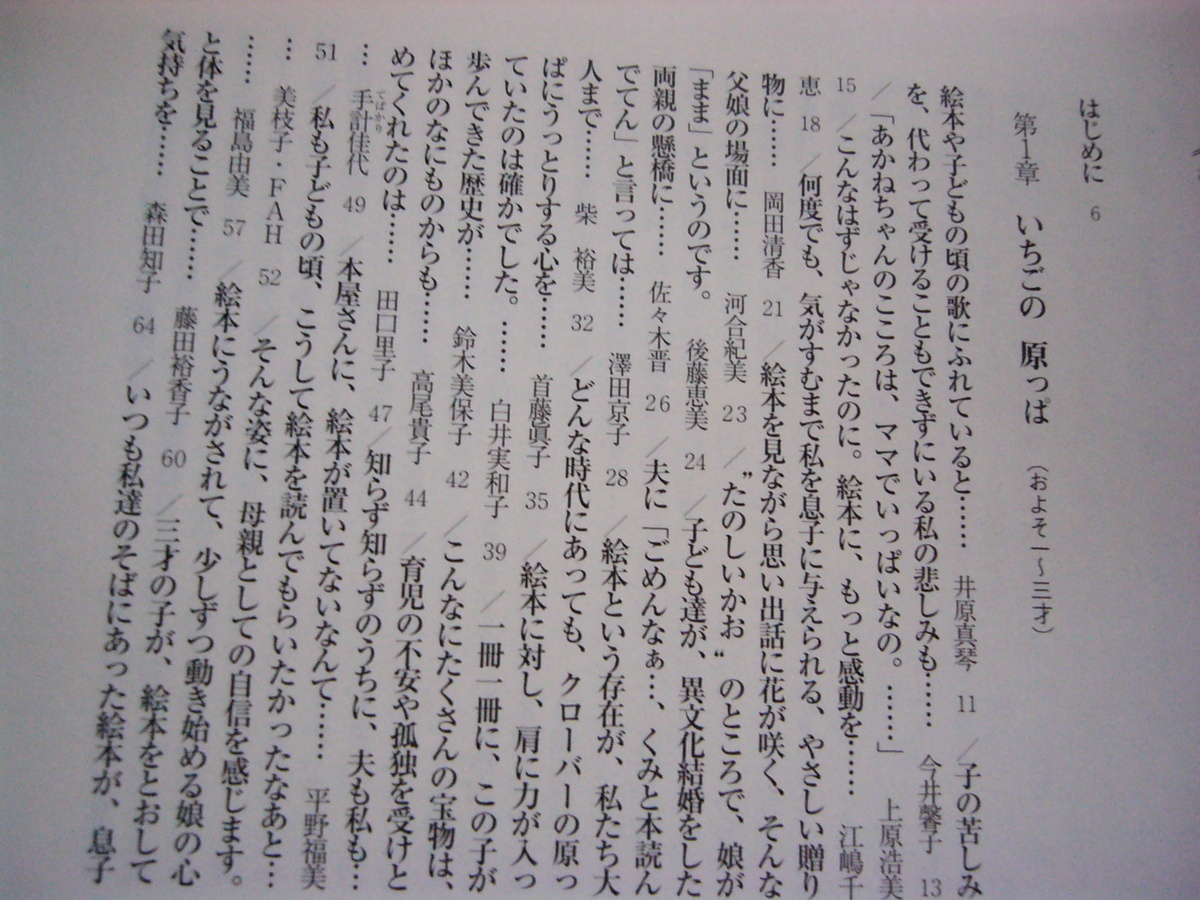 はじめに 6
第1章 いちごの 原っぱ （およそ一～三才）
絵本や子どもの頃の歌にふれていると…… 井原真琴 11 ／子の苦しみ
を、代わって受けることもできずにいる私の悲しみも…… 今井馨子 13
／「あかねちゃんのこころは、ママでいっぱいなの。……」 上原浩美
15 ／こんなはずじゃなかったのに。絵本に、もっと感動を…… 江嶋千
恵 18 ／何度でも、気がすむまで私を息子に与えられる、やさしい贈り
物に…… 岡田清香 21 ／絵本を見ながら思い出話に花が咲く、そんな
父娘の場面に…… 河合紀美 23 ／〝たのしいかお〟のところで、娘が
「まま」というのです。 後藤恵美 24 ／子ども達が、異文化結婚をした
両親の懸橋に…… 佐々木晋 26 ／夫に「ごめんなぁ…、くみと本読ん
でてん」と言っては…… 澤田京子 28 ／絵本という存在が、私たち大
人まで…… 柴 裕美 32 ／どんな時代にあっても、クローバーの原っ
ぱにうっとりする心を…… 首藤眞子 35 ／絵本に対し、肩に力が入っ
ていたのは確かでした。…… 白井実和子 39 ／一冊一冊に、この子が
歩んできた歴史が…… 鈴木美保子 42 ／こんなにたくさんの宝物は、
ほかのなにものからも…… 高尾貴子 44 ／育児の不安や孤独を受けと
めてくれたのは…… 田口里子 47 ／知らず知らずのうちに、夫も私も…
… 手計佳代 てばかり 49 ／本屋さんに、絵本が置いてないなんて…… 平野福美
51 ／私も子どもの頃、こうして絵本を読んでもらいたかったなあと…
… 美枝子・FAH 52 ／そんな姿に、母親としての自信を感じます。
…… 福島由美 57 ／絵本にうながされて、少しずつ動き始める娘の心
と体を見ることで…… 藤田裕香子 60 ／三才の子が、絵本をとおして
気持ちを…… 森田知子 64 ／いつも私達のそばにあった絵本が、息子